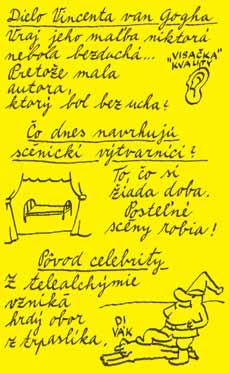 Dielo Vincenta van Gogha
Vraj jeho maľba niktorá
nebola bezduchá...
Pretože mala
autora,
ktorý bol bez ucha?
"VISAČKA"
KVALITY
Čo dnes navrhujú
scénickí výtvarníci?
To, čo si
žiada doba.
Posteľné
scény robia!
Pôvod celebrity
Z telealchýmie
vzniká
hrdý obor
z trpaslíka.
DI
VÁK